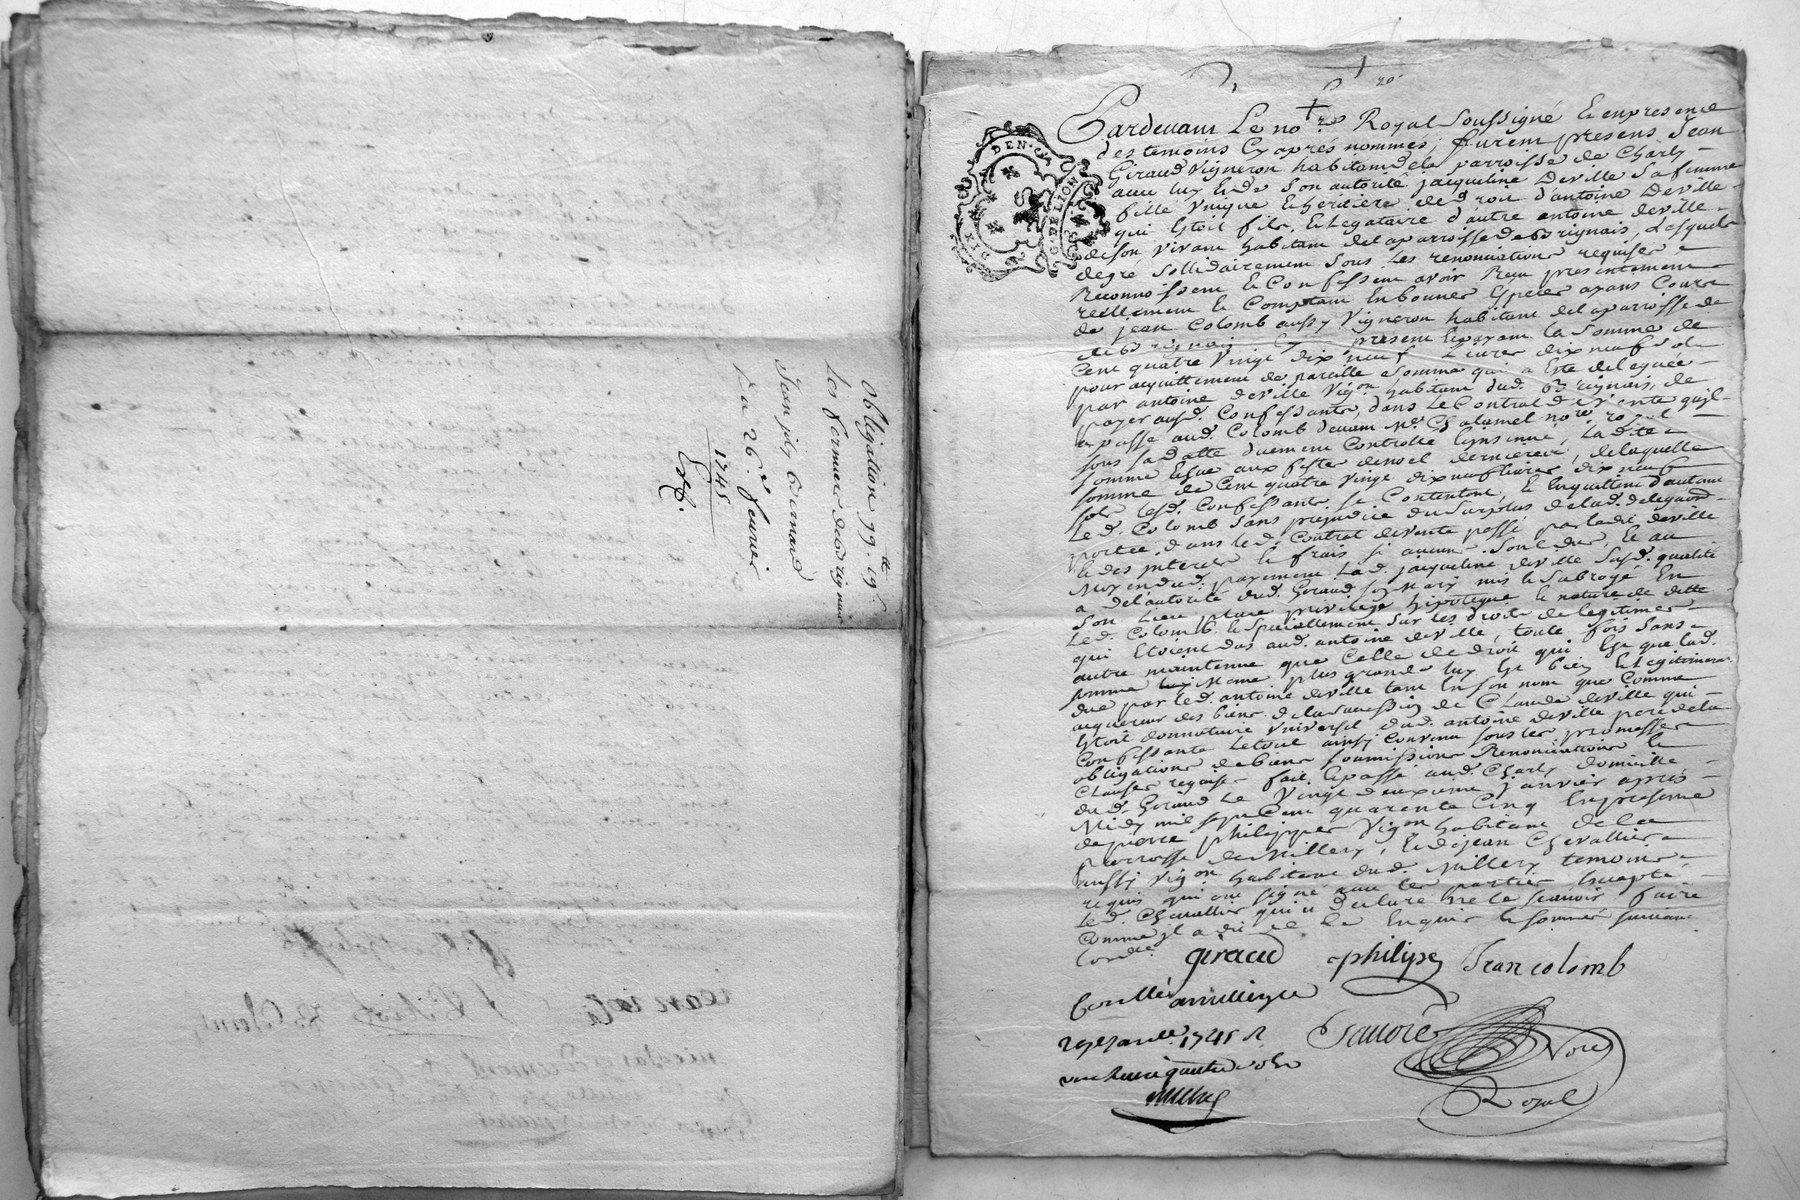 obligation 99.tt 19s
Les fermiers de Brignais
Jean
Du 26e feurier
1745
Exp.
DIX DEN.
G. DE LION
Pardeuant Le nore Royal Soussigné Et en presence
des temoins Cy aprés nommés, furent presens Jean
Giraud Vigneron habitant de la parroisse de Charly
auec luy Et de Son autorité jacqueline Deville Sa femme
fille Vnique Et heritiere de droit d'antoine Deville
qui Etoit fils, Et Legataire d'autre antoine deville
de son vivant habitant de la parroisse de Brignais, Lesquels
de gré Sollidairement Sous Les renonciations requises
Reconnoissent Et Confessent avoir Reçu presentement
reellement Et Comptant En bonnes Especes ayans Cours
de jean Colomb aussy Vigneron habitant de la parroisse de
Brignais present la Somme de
Cent quatre Vingt dix neuf Livres dix neuf sols
pour acquittement de pareille Somme qui a Eté deleguée
par antoine deville Vigon habitant dud. Brignais, de
payer ausd. Confessants, dans Le Contrat de Vente qu'il
a passé aud. Colomb deuant Me Chalamel nore royal
sous Sa datte duement Controllé, La dite
Somme Echue aux festes de noel dernieres, de laquelle
somme de Cent quatre Vingt dix neuf livres dix neuf
sols Lesd. Confessants Se Contentent, Et En quittent d'autant
Led. Colomb Sans prejudice du Surplus de lad. delegaon
portée dans Led. Contrat de vente passé par Ledit deville
Et des Interets Et frais Si aucuns Sont dus, Et au
Moyen dud. payement Lad. jacqueline deville Susd. qualité
a de l'autorité dud. Giraud Son Mary mis Et Subrogé En
Son Lieu place privilege hipoteque Et nature de dette
Led. Colomb Et Speciallement Sur Les droits de legitimes
qui Etoient dus aud. antoine deville, toute fois Sans
autre maintenue que Celle de droit qui Est que Lad.
somme Meme plus grande luy Est bien Et Legitimement
due par Led. antoine deville tant En Son nom que Comme
acquereur des biens de la Succession de Claude deville qui
Etoit donnataire Vniversel dud. antoine deville pere de la
Confessante Le tout ainsy Convenu Sous Les promesses
obligations de biens Soumissions Renonciations Et
Clauses requises fait Et passé aud. Charly domicille
dud. Giraud Le Vingt deuxieme janvier aprés
Midy mil Sept Cent quarente Cinq En presence
de pierre philippes Vigon habitant de la
Parroisse de Millery, Et de jean Chevallier
aussy Vigon habitant dud. Millery temoins
requis qui ont signé auec Les parties Excepté
Led. Chevallier qui a declaré ne le scauoir faire
Comme Il a dit de Ce Enquis Et Sommé Suiuant
Lordce.
giraud philipe Jean colomb
Conllé a millery le
1745 R
une liure quatre sols
Fauore Nore
Royal